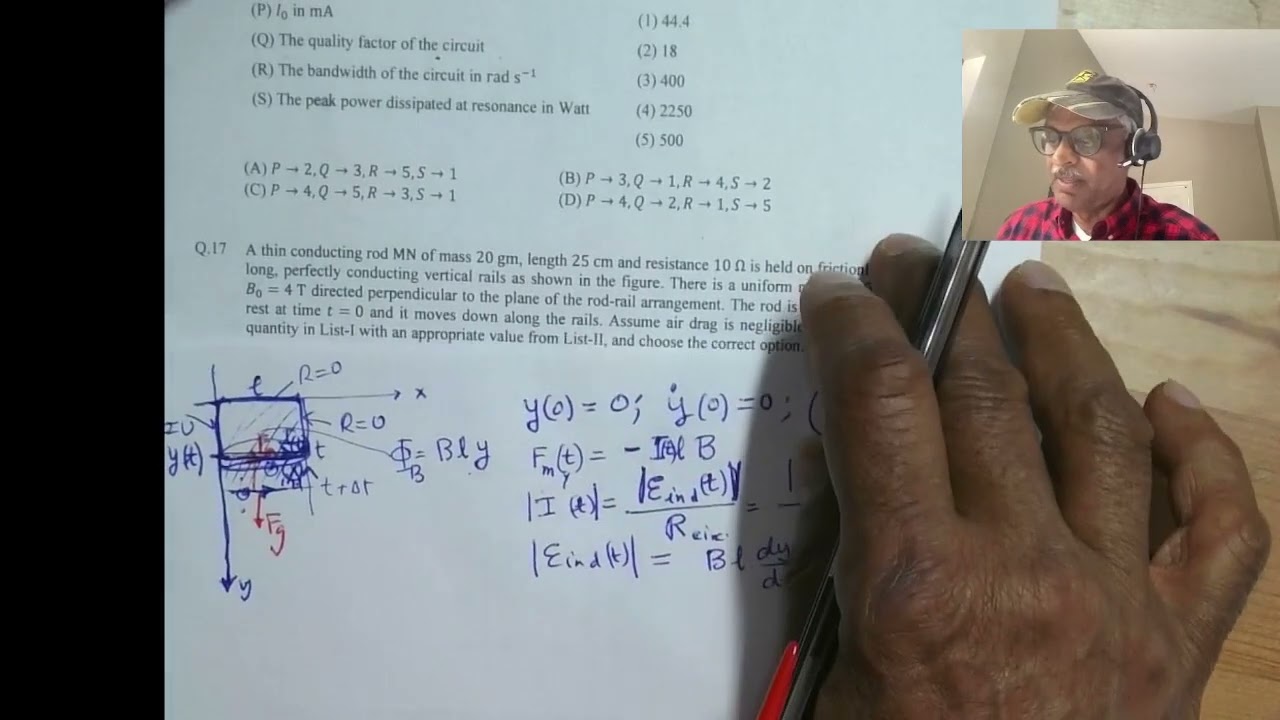 (P) I₀ in mA
(1) 44.4
(Q) The quality factor of the circuit
(2) 18
(R) The bandwidth of the circuit in rad s⁻¹
(3) 400
(S) The peak power dissipated at resonance in Watt
(4) 2250
(5) 500
(A) P → 2, Q → 3, R → 5, S → 1
(B) P → 3, Q → 1, R → 4, S → 2
(C) P → 4, Q → 5, R → 3, S → 1
(D) P → 4, Q → 2, R → 1, S → 5
Q.17 A thin conducting rod MN of mass 20 gm, length 25 cm and resistance 10 Ω is held on
long, perfectly conducting vertical rails as shown in the figure. There is a uniform
B₀ = 4 T directed perpendicular to the plane of the rod-rail arrangement. The rod is
rest at time t = 0 and it moves down along the rails. Assume air drag is
quantity in List-I with an appropriate value from List-II, and choose the correct option.
ℓ R=0
x
R=0
y(t)
t
Φ_B = B ℓ y
t+Δt
F_g
y
y(0) = 0; ẏ(0) = 0;
F_my(t) = - I(t)ℓ B
|I(t)| = |ε_ind(t)| / R_cir. =
|ε_ind(t)| = B ℓ dy/d